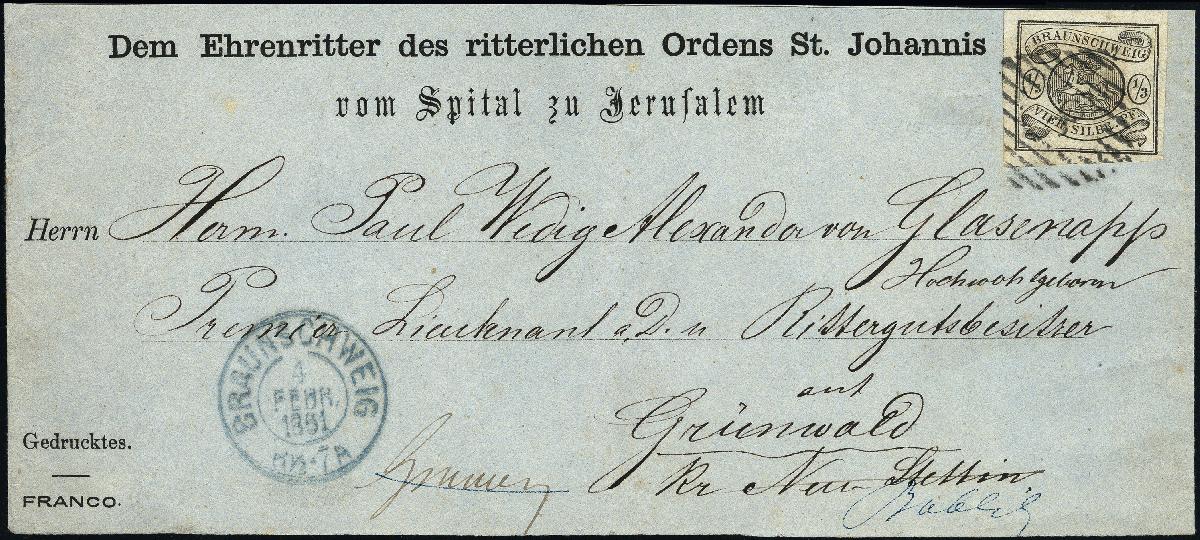 Dem Ehrenritter des ritterlichen Ordens St. Johannis
vom Spital zu Jerusalem
BRAUNSCHWEIG
1/3 1/3
VIER SILBR. PF.
Herrn Herm. Paul Wedig Alexander von Glasenapp
Hochwohlgeboren
Premier Lieutenant a.D. u Rittergutsbesitzer
auf
Grünwald
Kr Neu Stettin
Bublitz
BRAUNSCHWEIG
4
FEBR.
1861
6½-7A
Gedrucktes.
FRANCO.